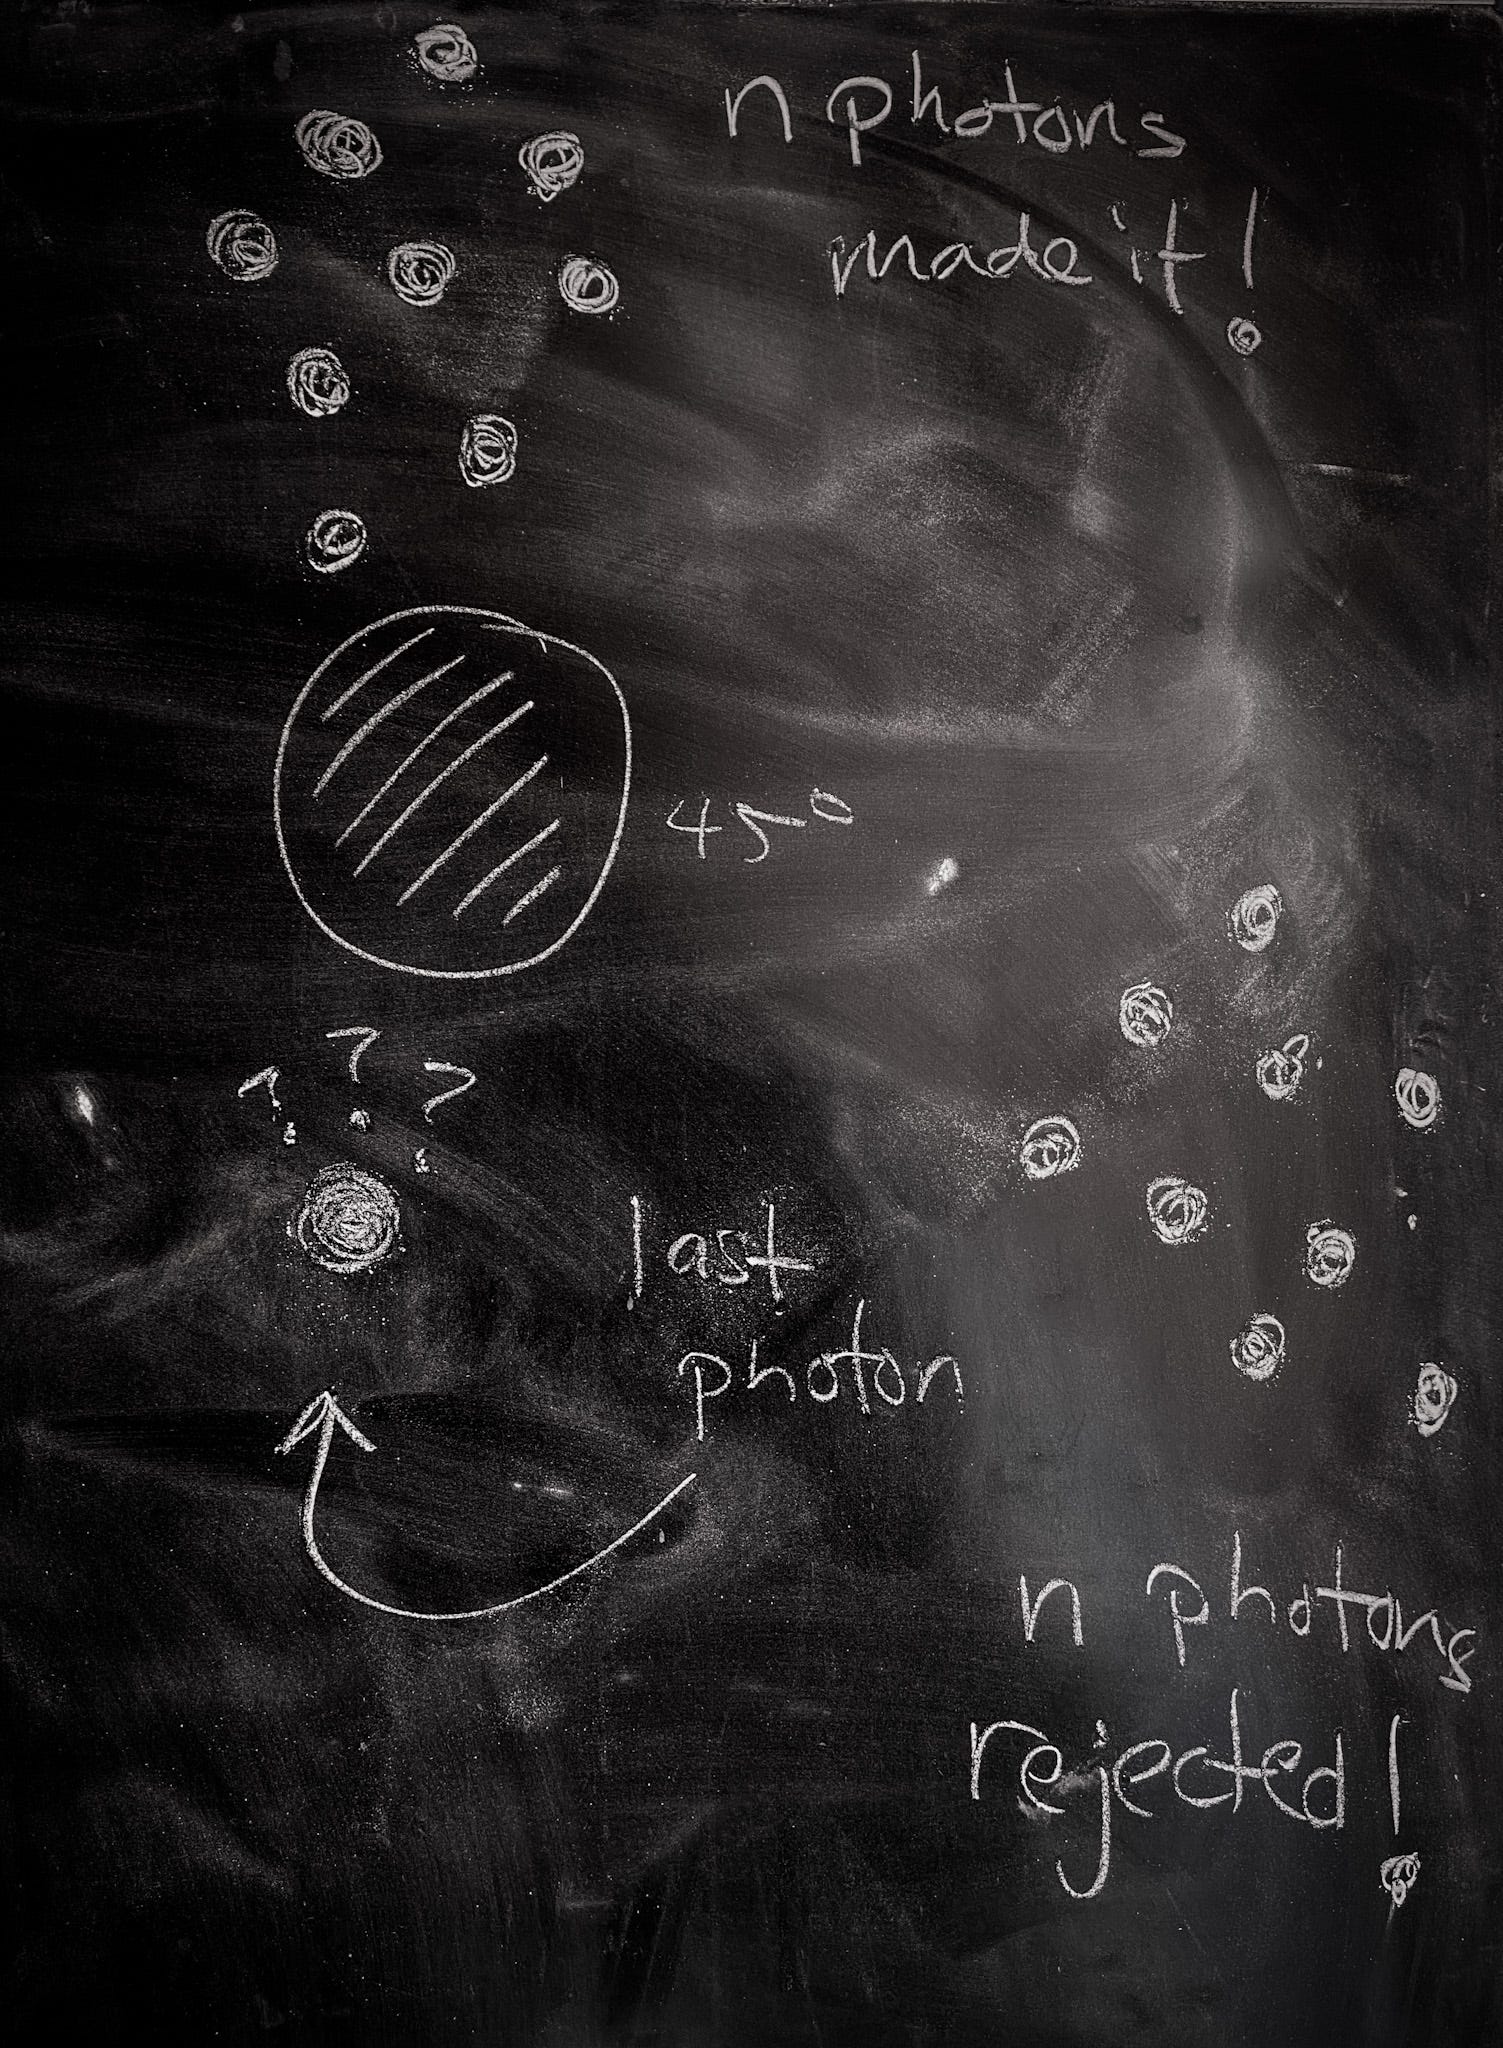 n photons
made it!
450
? ? ?
last
photon
n photons
rejected!